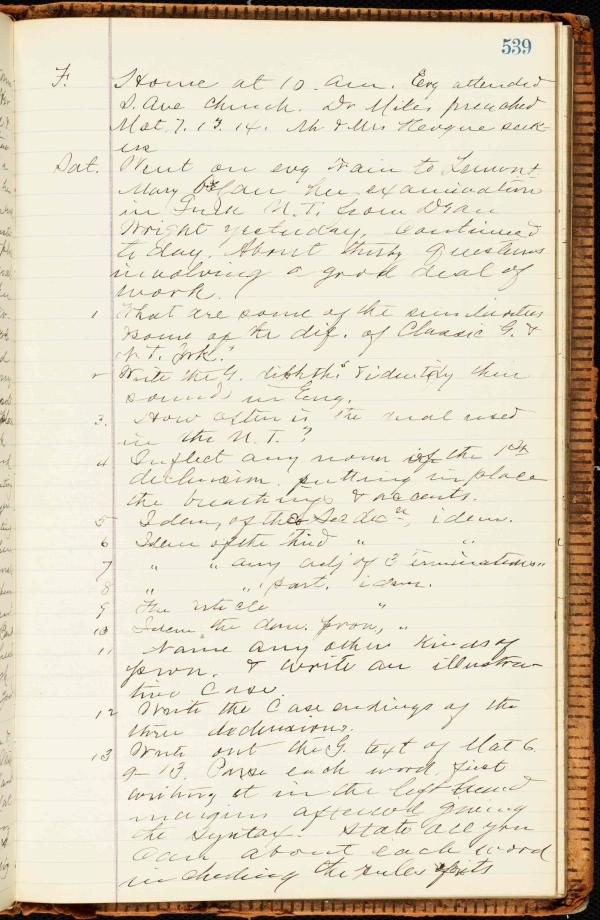 539
F. Home at 10 am. Evg attended
S. Ave church. Dr Miles preached
Mat. 7. 13. 14. Mr & Mrs Keogue seek-
ers
Sat. Went on evg train to Lemont
Mary began her examination
in Greek N. T. from Dean
Wright yesterday, continued
to day. About thirty questions
involving a good deal of
work.
1 What are some of the similarities
& some of the dif. of Classic G. &
N. T. Grk.?
2 Write the G. diphths & identify their
sounds in Eng.
3. How often is the dual used
in the N. T. ?
4 Inflect any noun of the 1st
declension putting in place
the breathings & accents.
5 Idem, of the Sec dec, idem.
6 Idem of the third " "
7 " " any adj of 3 terminations "
8 " " part. idem.
9 The article "
10 Idem the dem. pron, "
11 Name any other kinds of
pron. & write an illustra-
tive case.
12 Write the case endings of the
three declensions.
13 Write out the G. text of Mat 6
9-13. Parse each word first
writing it in the left hand
margin afterwd giving
the syntax. State all you
can about each word
including the rules for its